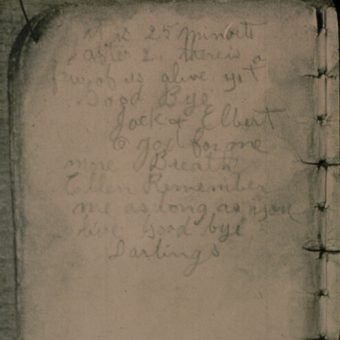 it is 25 minuets
after 2. there is
few of us alive yet
Good Bye
Jack & Elbert
O God for one
more Breath
Ellen Remember
me as long as you
live Good bye
Darlings